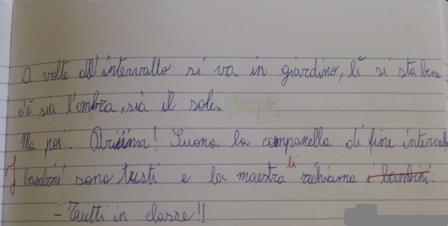 A volte all'intervallo si va in giardino, lì si sta bene
c'è sia l'ombra, sia il sole.
Ma poi... Driiinn! Suona la campanella di fine interval
I bambini sono tristi e la maestra li richiama i bambini:
- Tutti in classe!!